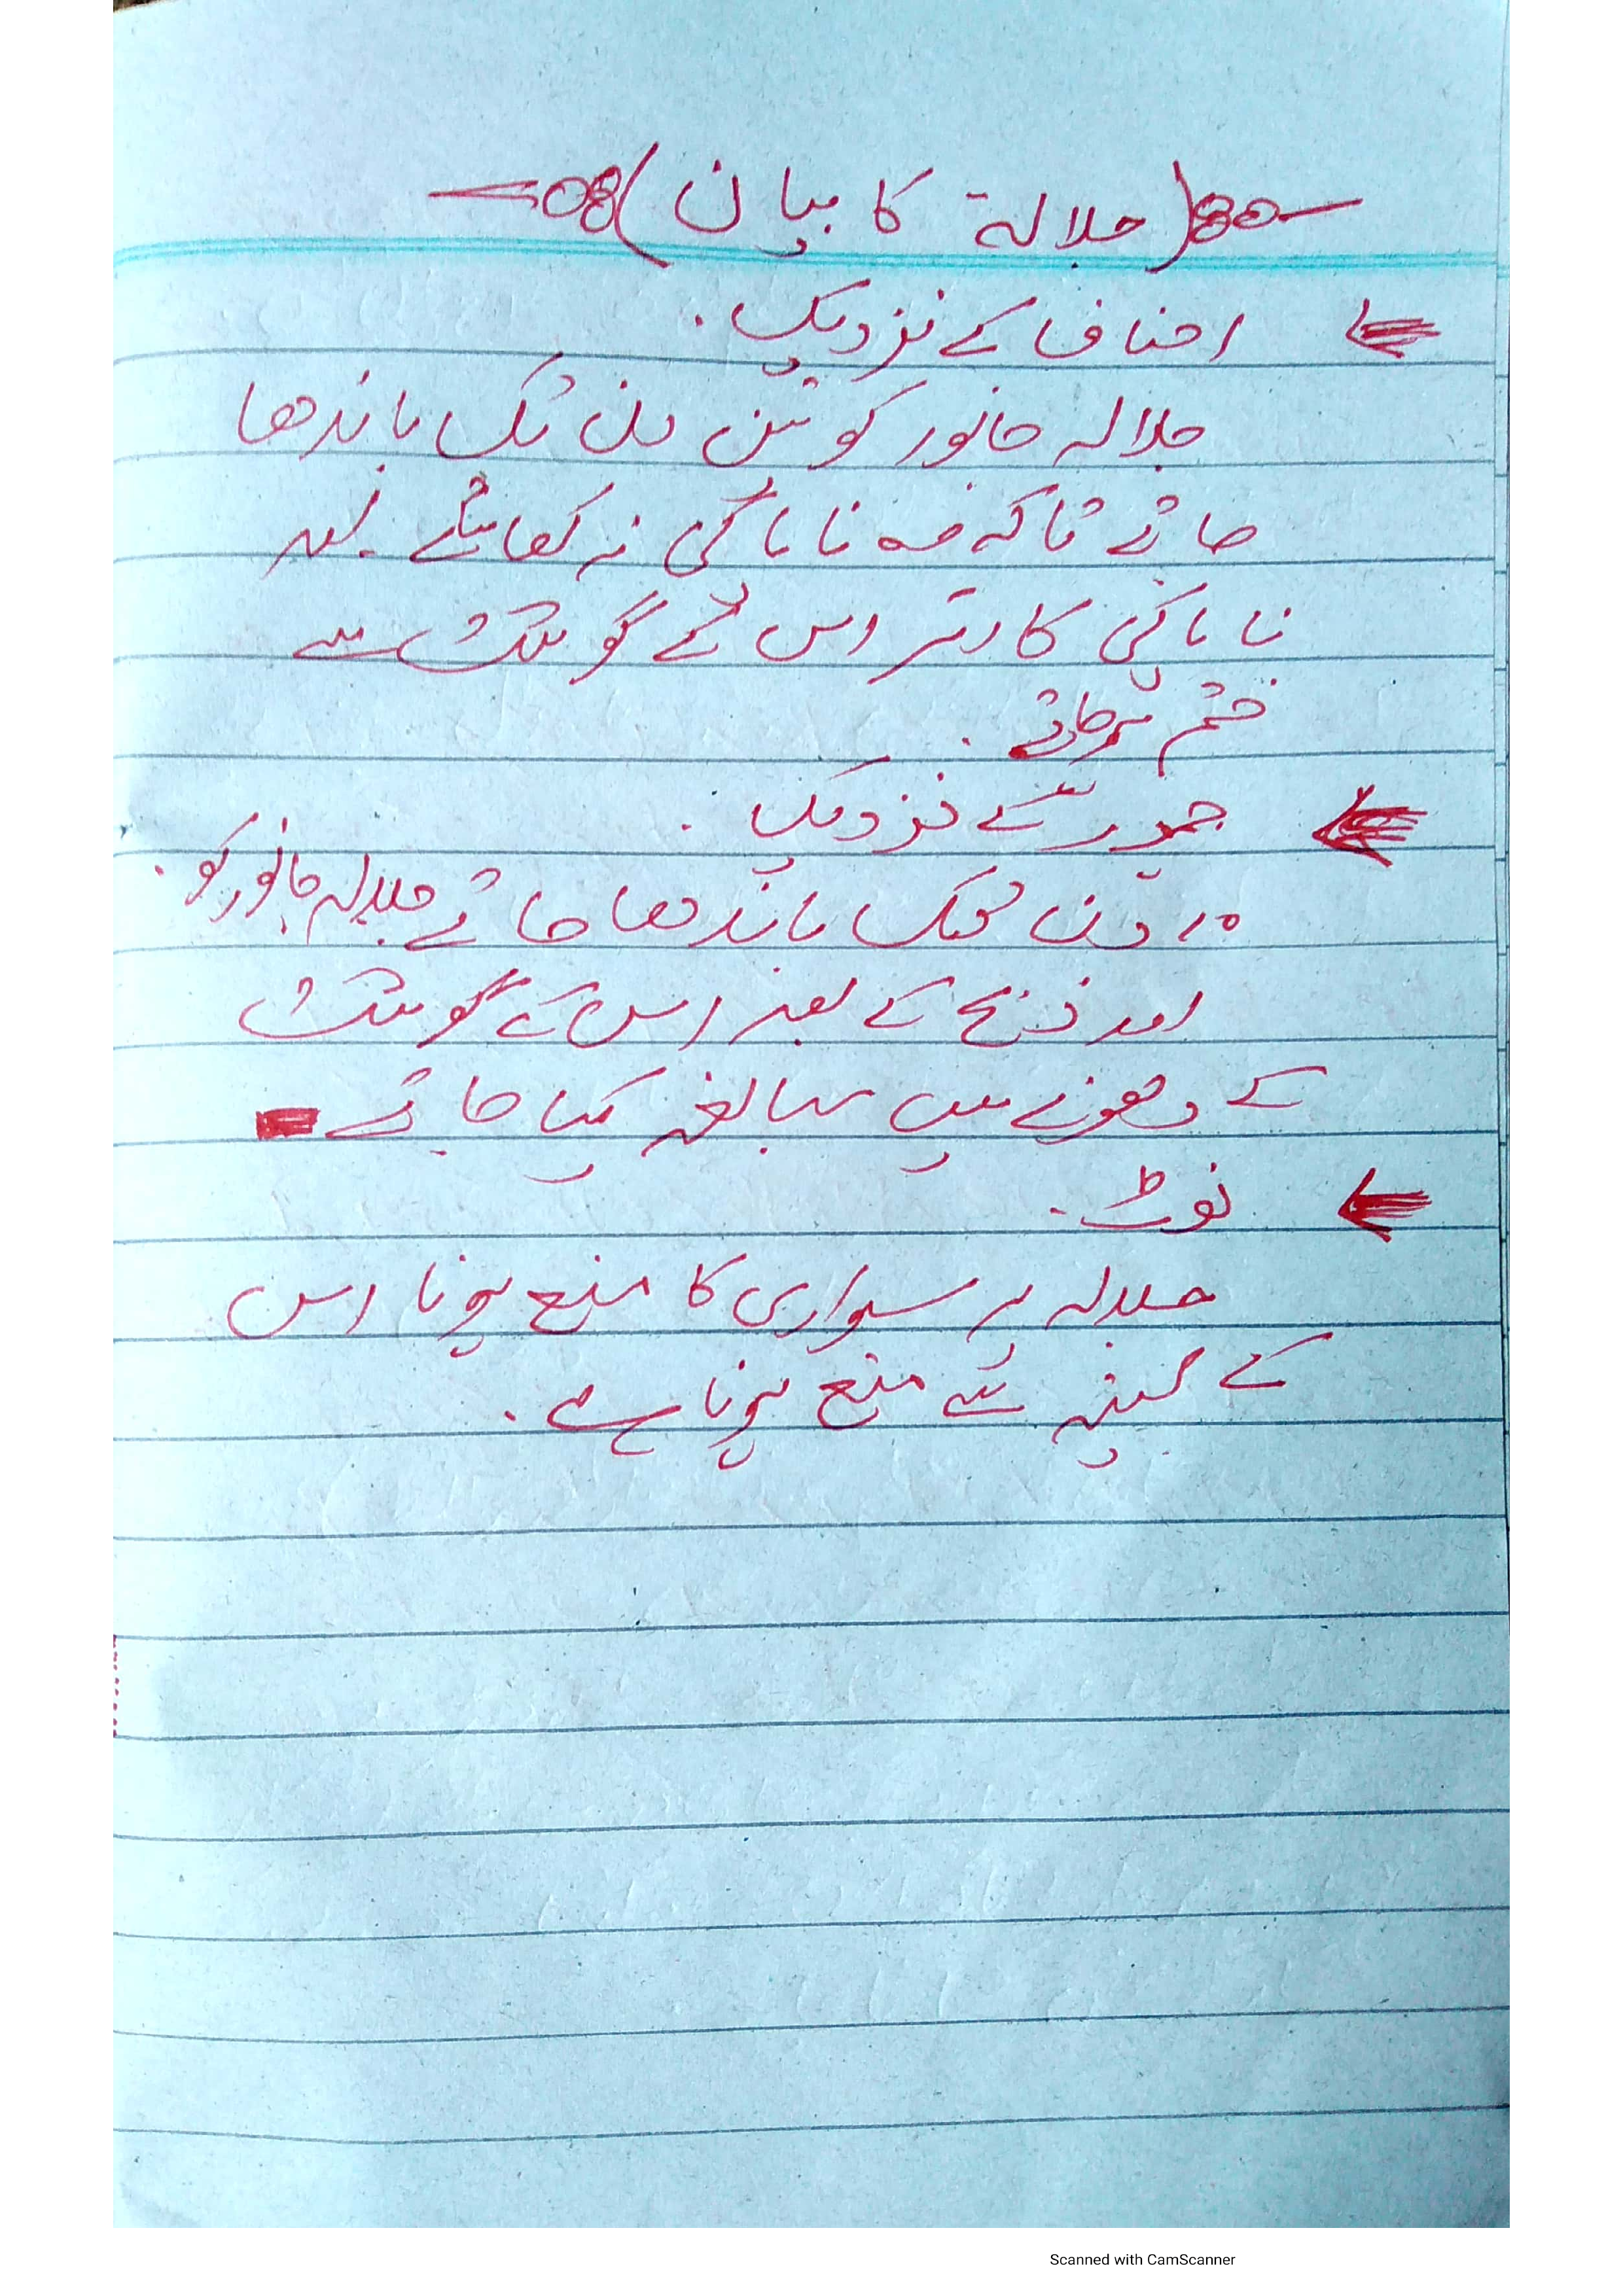 (جلالۃ کا بیان)
احناف کے نزدیک.
جلالہ جانور کو تین دن تک باندھا
جائے تاکہ وہ ناپاکی نہ کھائے.
ناپاکی کا اثر اس کے گوشت سے
ختم ہو جائے.
جمہور کے نزدیک.
دن تک باندھا جائے جلالہ جانور کو.
اور ذبح کے بعد اس کے گوشت
کے دھونے میں مبالغہ کیا جائے
نوٹ.
جلالہ پر سواری کا منع ہونا اس
کے پسینہ سے منع ہونا ہے.
Scanned with CamScanner